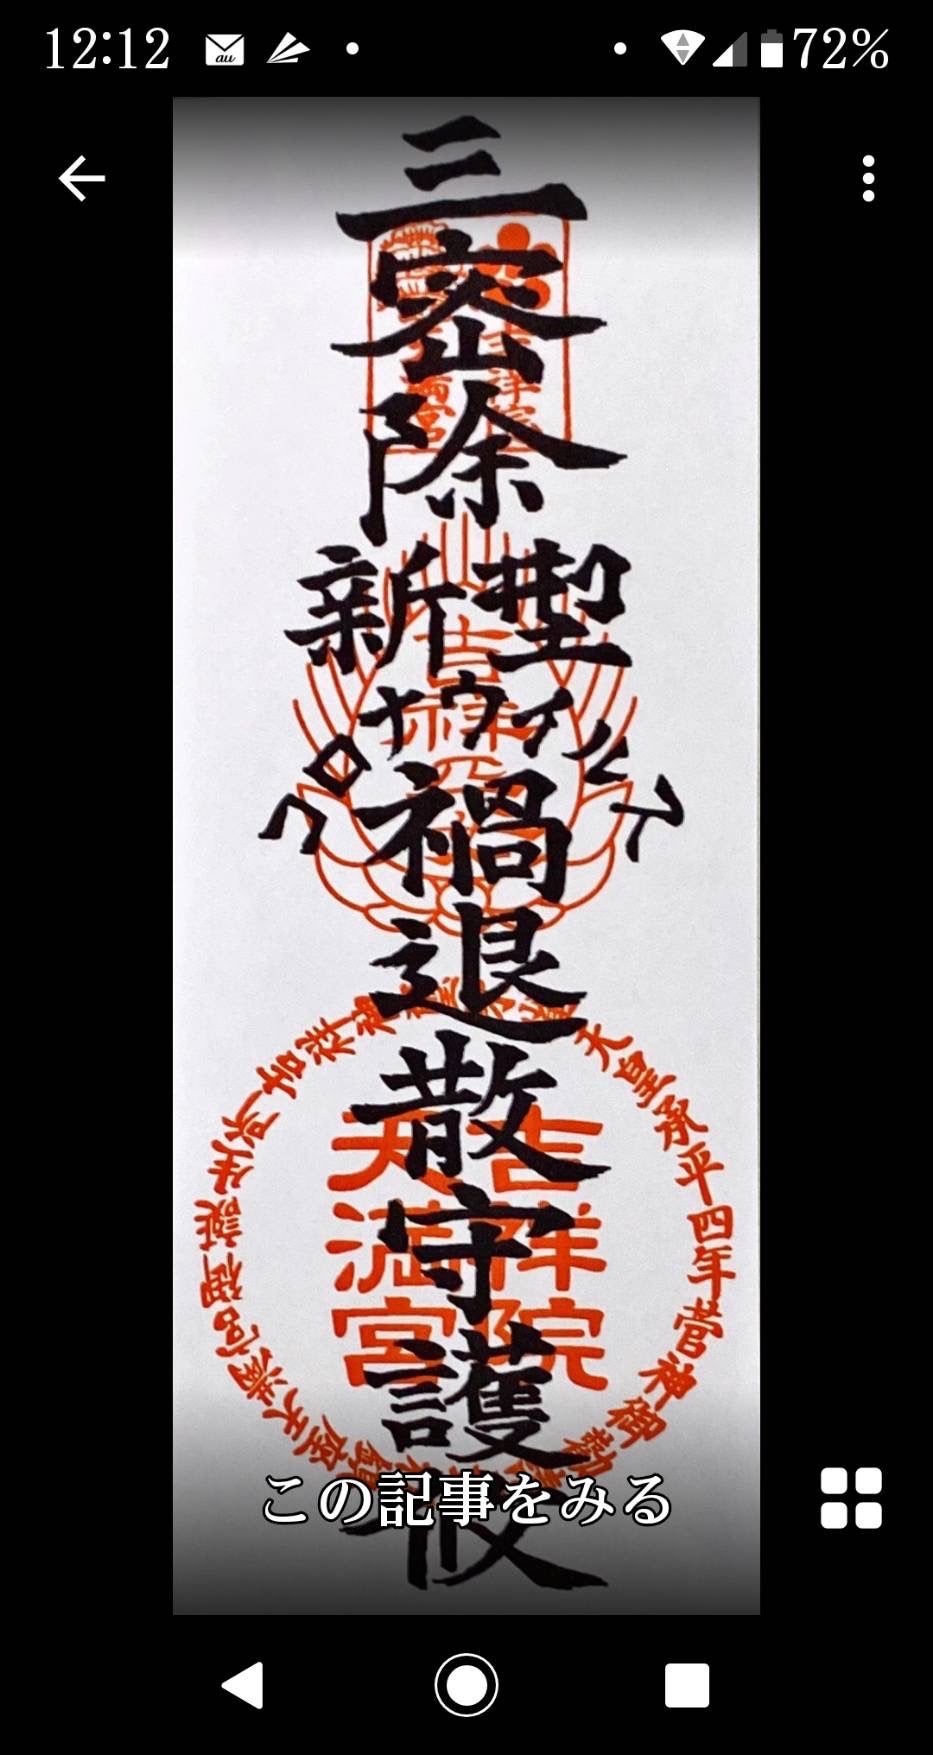 12:12
au
72%
三密除
新型
コロナウイルス
禍退散守護
吉祥院
天満宮
天皇承平四年菅神御
御誕生所
この記事をみる